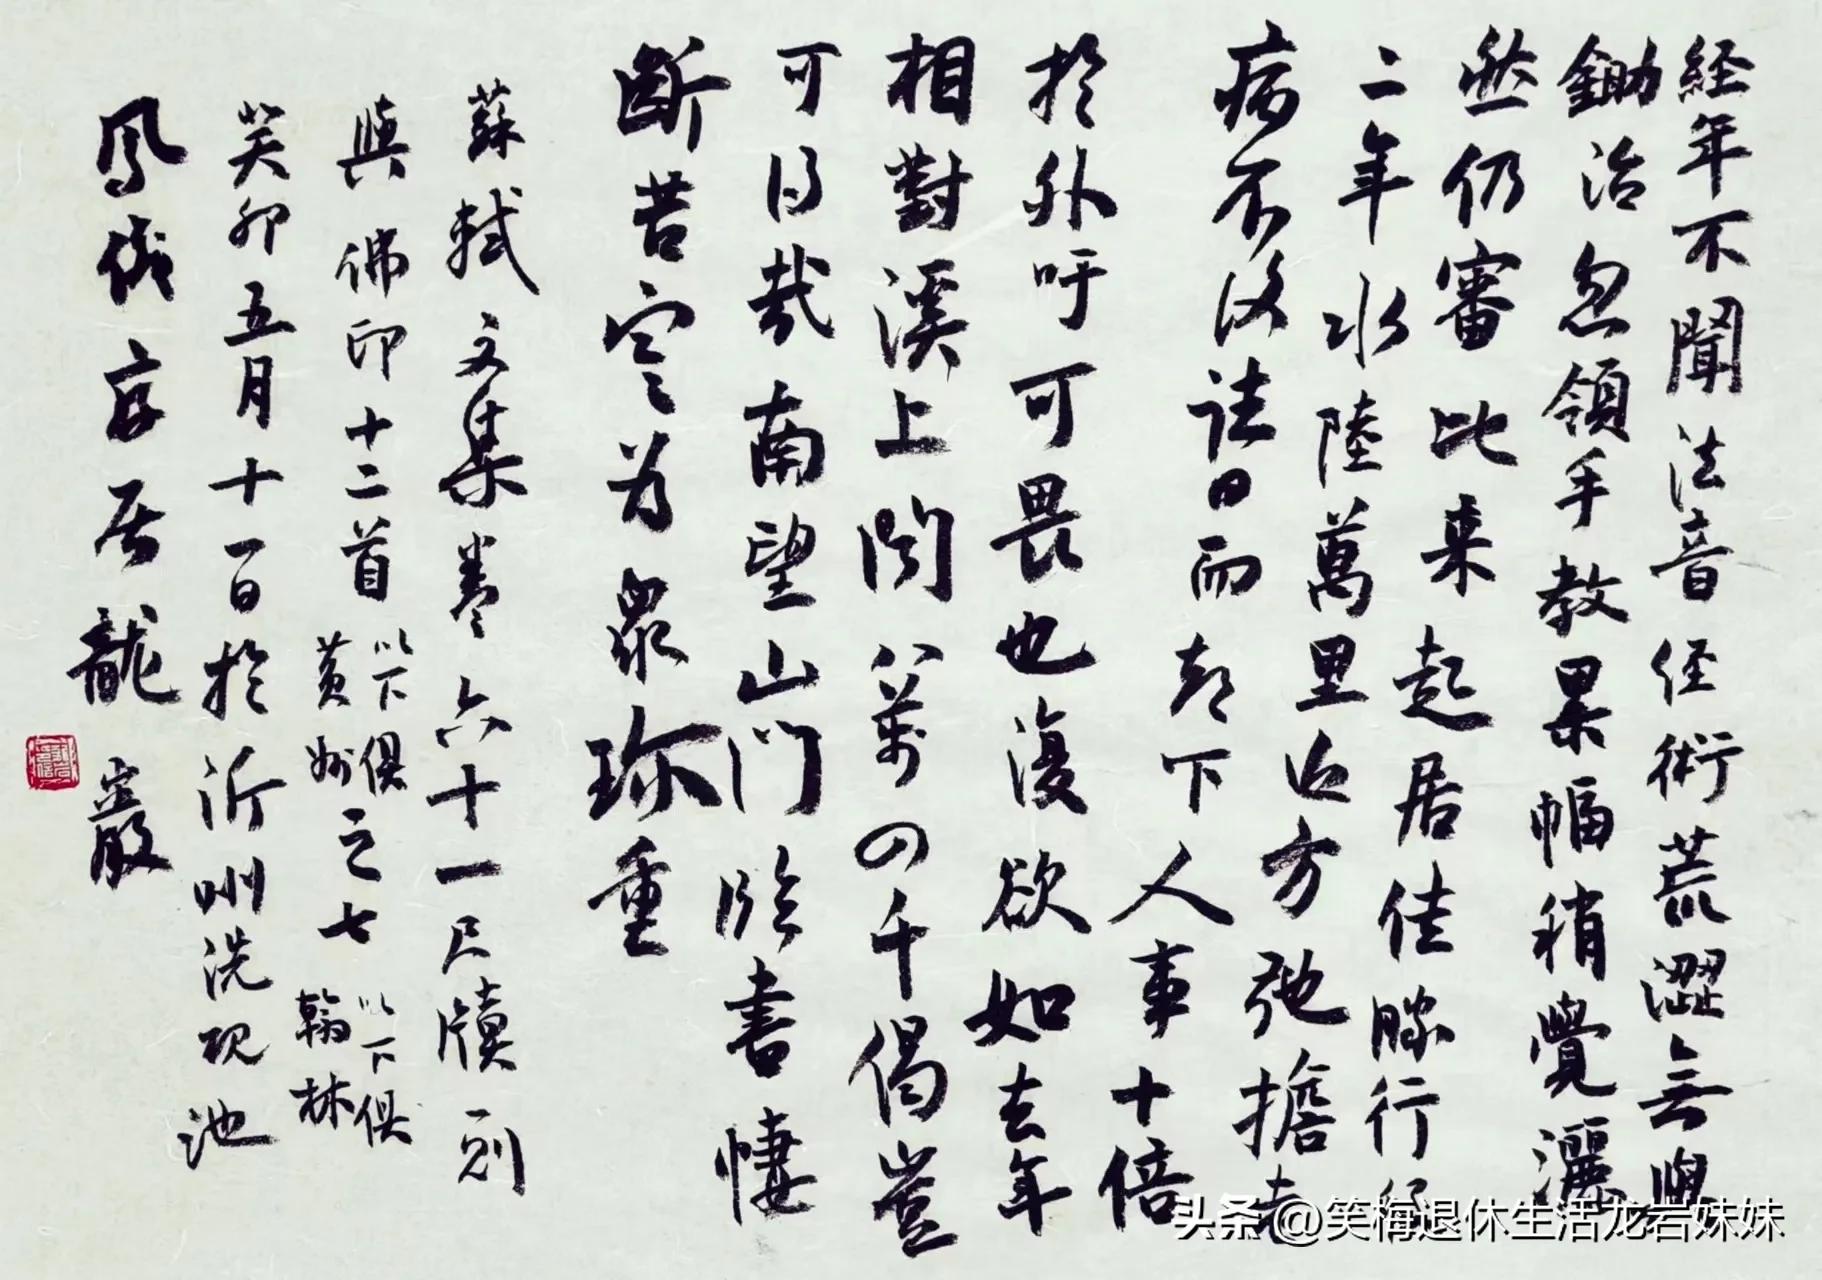 経年不聞法音径術荒澀無與
鋤治忽領手教累幅稍覺灑
然仍審比来起居佳勝行役
二年水陸萬里近方弛擔老
病不復往日而都下人事十倍
於外吁可畏也復欲如去年
相對溪上聞八萬四千偈豈
可得哉南望山門臨書悽
斷苦寒為眾珍重
蘇軾文集卷六十一尺牘一則
與佛印十二首以下俱黃州之七以下俱翰林
癸卯五月十一日於沂州洗砚池
鳳居龍巖
头条@笑梅退休生活龙岩妹妹